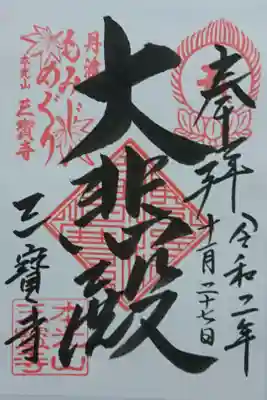 奉拝
令和二年
十一月二十七日
大悲殿
三寶寺
丹波
もみじ
めぐり
三寶寺